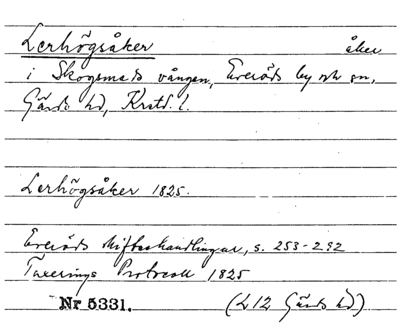 Lerhögsåker åker
i Skogsmads vången, Everöds by och sn,
Gärds hd, Krstd. l.
Lerhögsåker 1825.
Everöds skifteshandlingar, s. 253-292
Taxerings Protocoll 1825
Nr 5331. (L 12 Gärds hd)